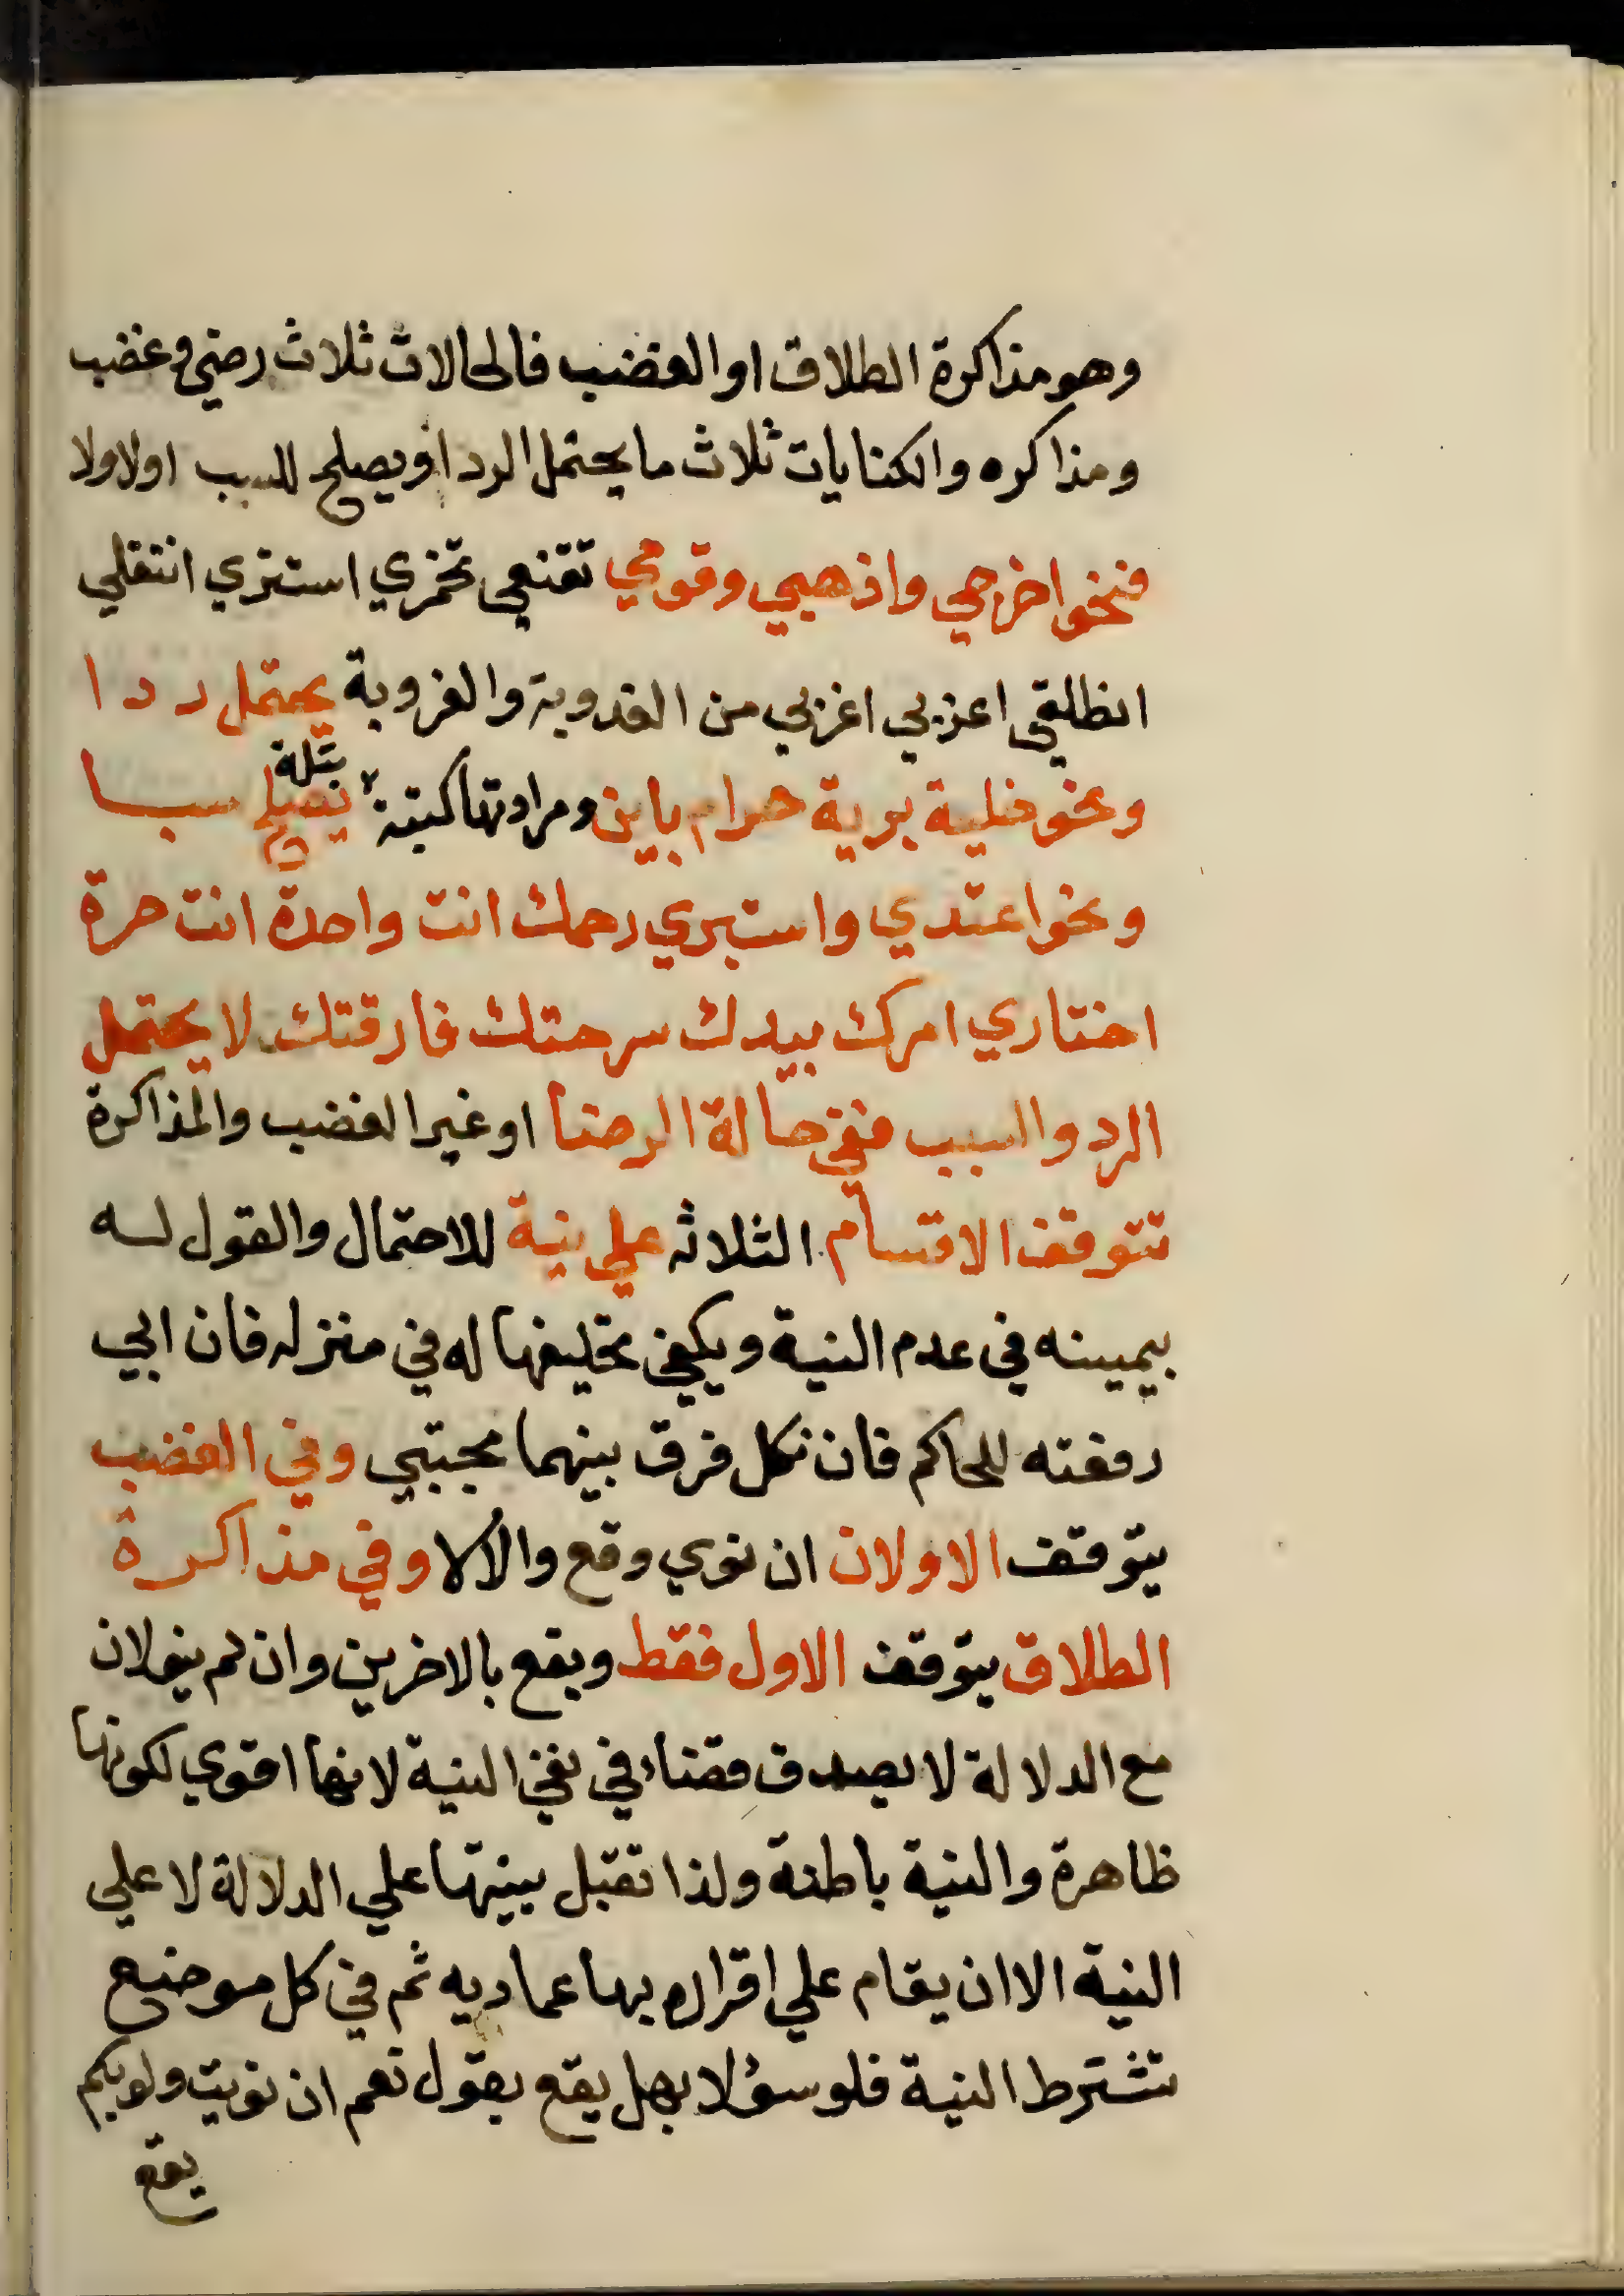 وهو مذاكرة الطلاق او الغضب فالحالات ثلاث رضي وغضب
ومذاكره والكنايات ثلاث ما يحتمل الرد او يصلح للسب اولا ولا
فنحو اخرجي واذهبي وقومي تقنعي تخمري استتري انتقلي
انطلقي اعزبي اغربي من الغدوبة والغروبة يحتمل ردا
ونحو خلية برية حرام باين ومرادتها كبتة بتلة يصلح سبا
ونحو اعتدي واستبري رحمك انت واحدة انت حرة
اختاري امرك بيدك سرحتك فارقتك لا يحتمل
الرد والسب ففي حالة الرضا او غير الغضب والمذاكرة
تتوقف الاقسام الثلاثه علي نية للاحتمال والقول له
بيمينه في عدم النية ويكفي تحليفها له في منزله فان ابي
رفعته للحاكم فان نكل فرق بينهما مجتبي وفي الغضب
يتوقف الاولان ان نوي وقع والا لا وفي مذاكرة
الطلاق يتوقف الاول فقط ويقع بالاخرين وان لم ينو لان
مع الدلالة لا يصدق قضاء في نفي النية لانها اقوي لكونها
ظاهرة والنية باطنة ولذا تقبل بينتها علي الدلالة لا علي
النية الا ان يقام علي اقراره بها عماديه ثم في كل موضع
تشترط النية فلو سؤلا بهل يقع بقول نعم ان نويت ولو بكم
يقع